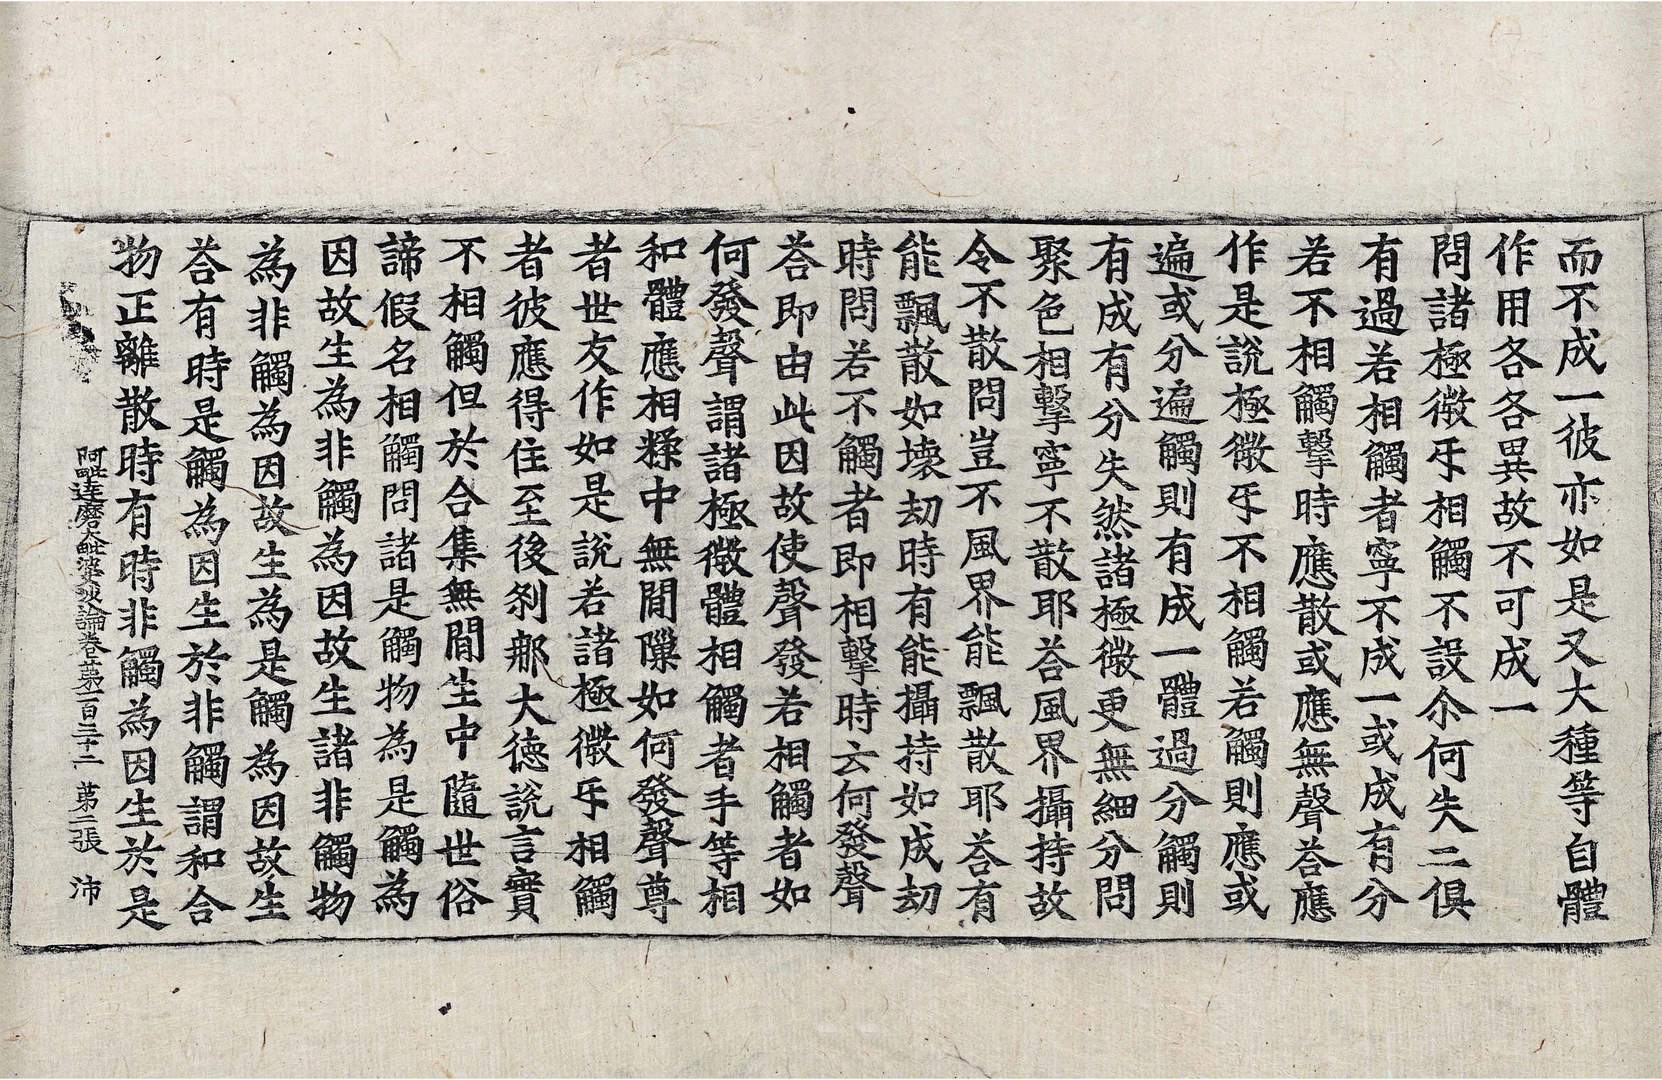 而不成一彼亦如是又大種等自體
作用各各異故不可成一
問諸極微㸦相觸不設尒何失二俱
有過若相觸者寧不成一或成有分
若不相觸擊時應散或應無聲荅應
作是說極微㸦不相觸若觸則應或
遍或分遍觸則有成一體過分觸則
有成有分失然諸極微更無細分問
聚色相擊寧不散耶荅風界攝持故
令不散問豈不風界能飄散耶荅有
能飄散如壞劫時有能攝持如成劫
時問若不觸者即相擊時云何發聲
荅即由此因故使聲發若相觸者如
何發聲謂諸極微體相觸者手等相
和體應相糅中無間隟如何發聲尊
者世友作如是說若諸極微㸦相觸
者彼應得住至後剎那大德說言實
不相觸但於合集無間生中隨世俗
諦假名相觸問諸是觸物為是觸為
因故生為非觸為因故生諸非觸物
為非觸為因故生為是觸為因故生
荅有時是觸為因生於非觸謂和合
物正離散時有時非觸為因生於是
阿毗達磨大毗婆沙論卷第一百三十二 第二張 沛